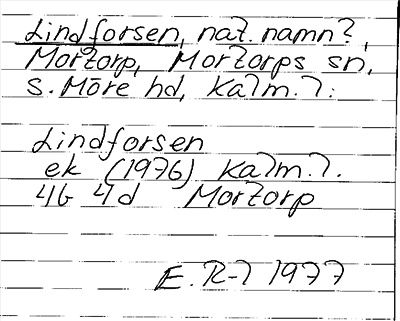 Lindforsen, nat. namn?,
Mortorp, Mortorps sn,
S. Möre hd, Kalm. l:
Lindforsen
ek (1976) Kalm. l.
4G 4d Mortorp
E. R-l 1977